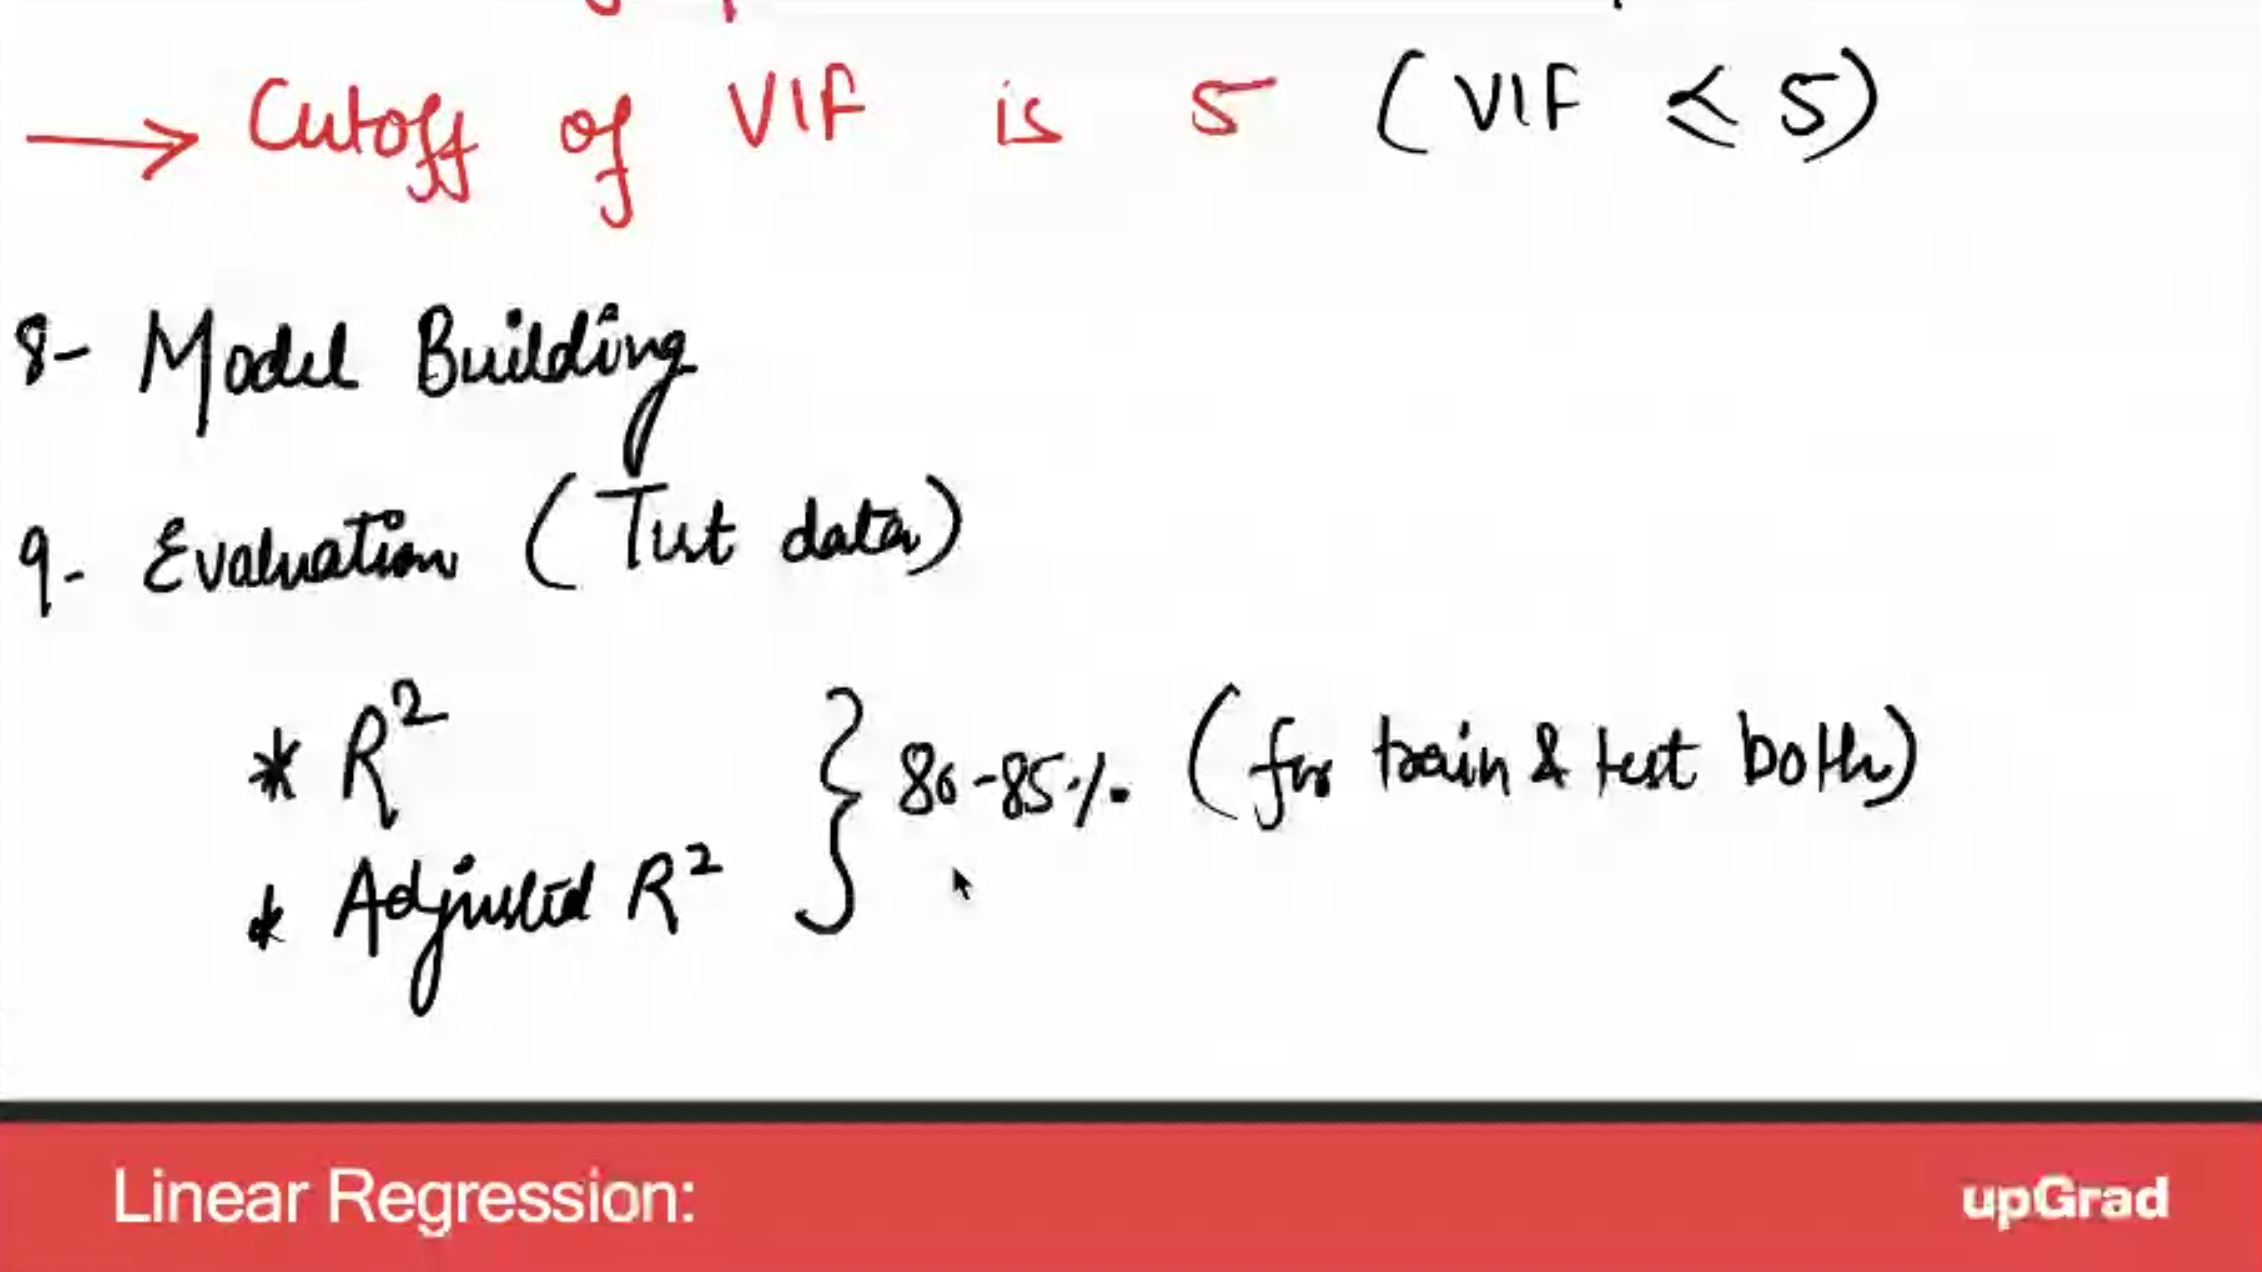 → Cutoff of VIF is 5 (VIF ⩽ 5)
8- Model Building
9- Evaluation (Test data)
* R²
} 80-85% (for train & test both)
* Adjusted R²
Linear Regression:
upGrad